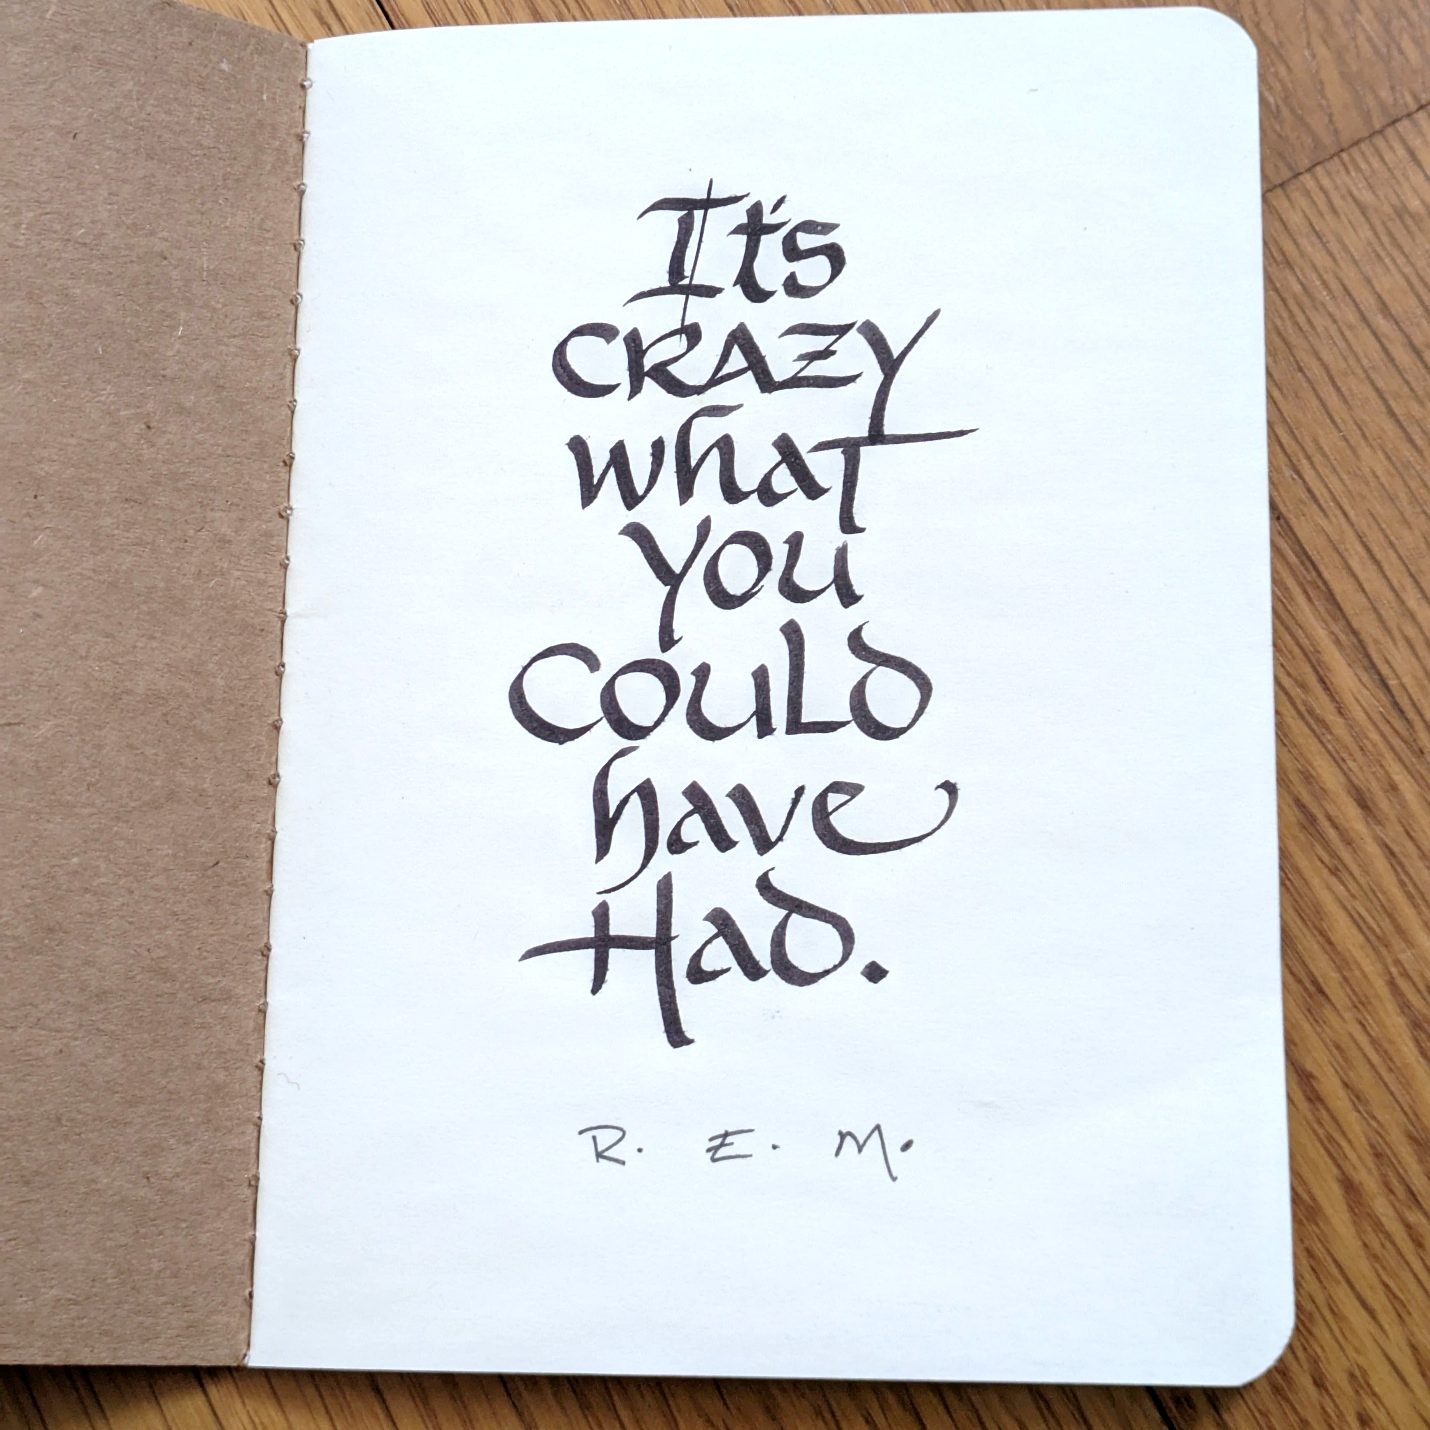 It's
CRAZY
whaT
you
CouLd
have
Had.
R. E. M.